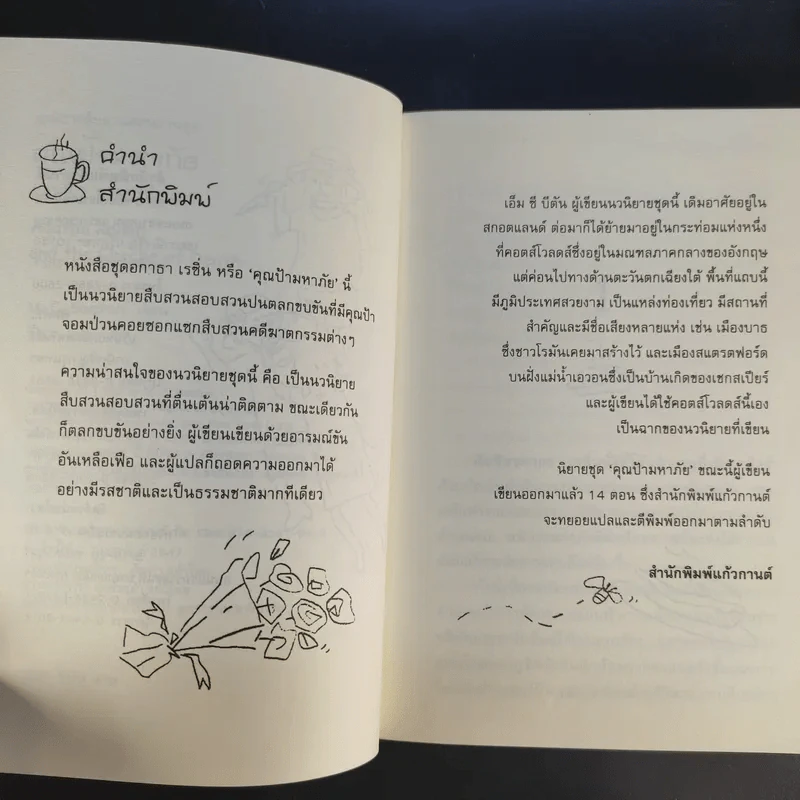 คำนำ
สำนักพิมพ์
หนังสือชุดอกาธา เรซิ่น หรือ ‘คุณป้ามหาภัย’ นี้
เป็นนวนิยายสืบสวนสอบสวนปนตลกขบขันที่มีคุณป้า
จอมป่วนคอยซอกแซกสืบสวนคดีฆาตกรรมต่างๆ
ความน่าสนใจของนวนิยายชุดนี้ คือ เป็นนวนิยาย
สืบสวนสอบสวนที่ตื่นเต้นน่าติดตาม ขณะเดียวกัน
ก็ตลกขบขันอย่างยิ่ง ผู้เขียนเขียนด้วยอารมณ์ขัน
อันเหลือเฟือ และผู้แปลก็ถอดความออกมาได้
อย่างมีรสชาติและเป็นธรรมชาติมากทีเดียว
เอ็ม ซี บีตัน ผู้เขียนนวนิยายชุดนี้ เดิมอาศัยอยู่ใน
สกอตแลนด์ ต่อมาก็ได้ย้ายมาอยู่ในกระท่อมแห่งหนึ่ง
ที่คอตส์โวลดส์ซึ่งอยู่ในมณฑลภาคกลางของอังกฤษ
แต่ค่อนไปทางด้านตะวันตกเฉียงใต้ พื้นที่แถบนี้
มีภูมิประเทศสวยงาม เป็นแหล่งท่องเที่ยว มีสถานที่
สำคัญและมีชื่อเสียงหลายแห่ง เช่น เมืองบาธ
ซึ่งชาวโรมันเคยมาสร้างไว้ และเมืองสแตรตฟอร์ด
บนฝั่งแม่น้ำเอวอนซึ่งเป็นบ้านเกิดของเชกสเปียร์
และผู้เขียนได้ใช้คอตส์โวลดส์นี้เอง
เป็นฉากของนวนิยายที่เขียน
นิยายชุด ‘คุณป้ามหาภัย’ ขณะนี้ผู้เขียน
เขียนออกมาแล้ว 14 ตอน ซึ่งสำนักพิมพ์แก้วกานต์
จะทยอยแปลและตีพิมพ์ออกมาตามลำดับ
สำนักพิมพ์แก้วกานต์